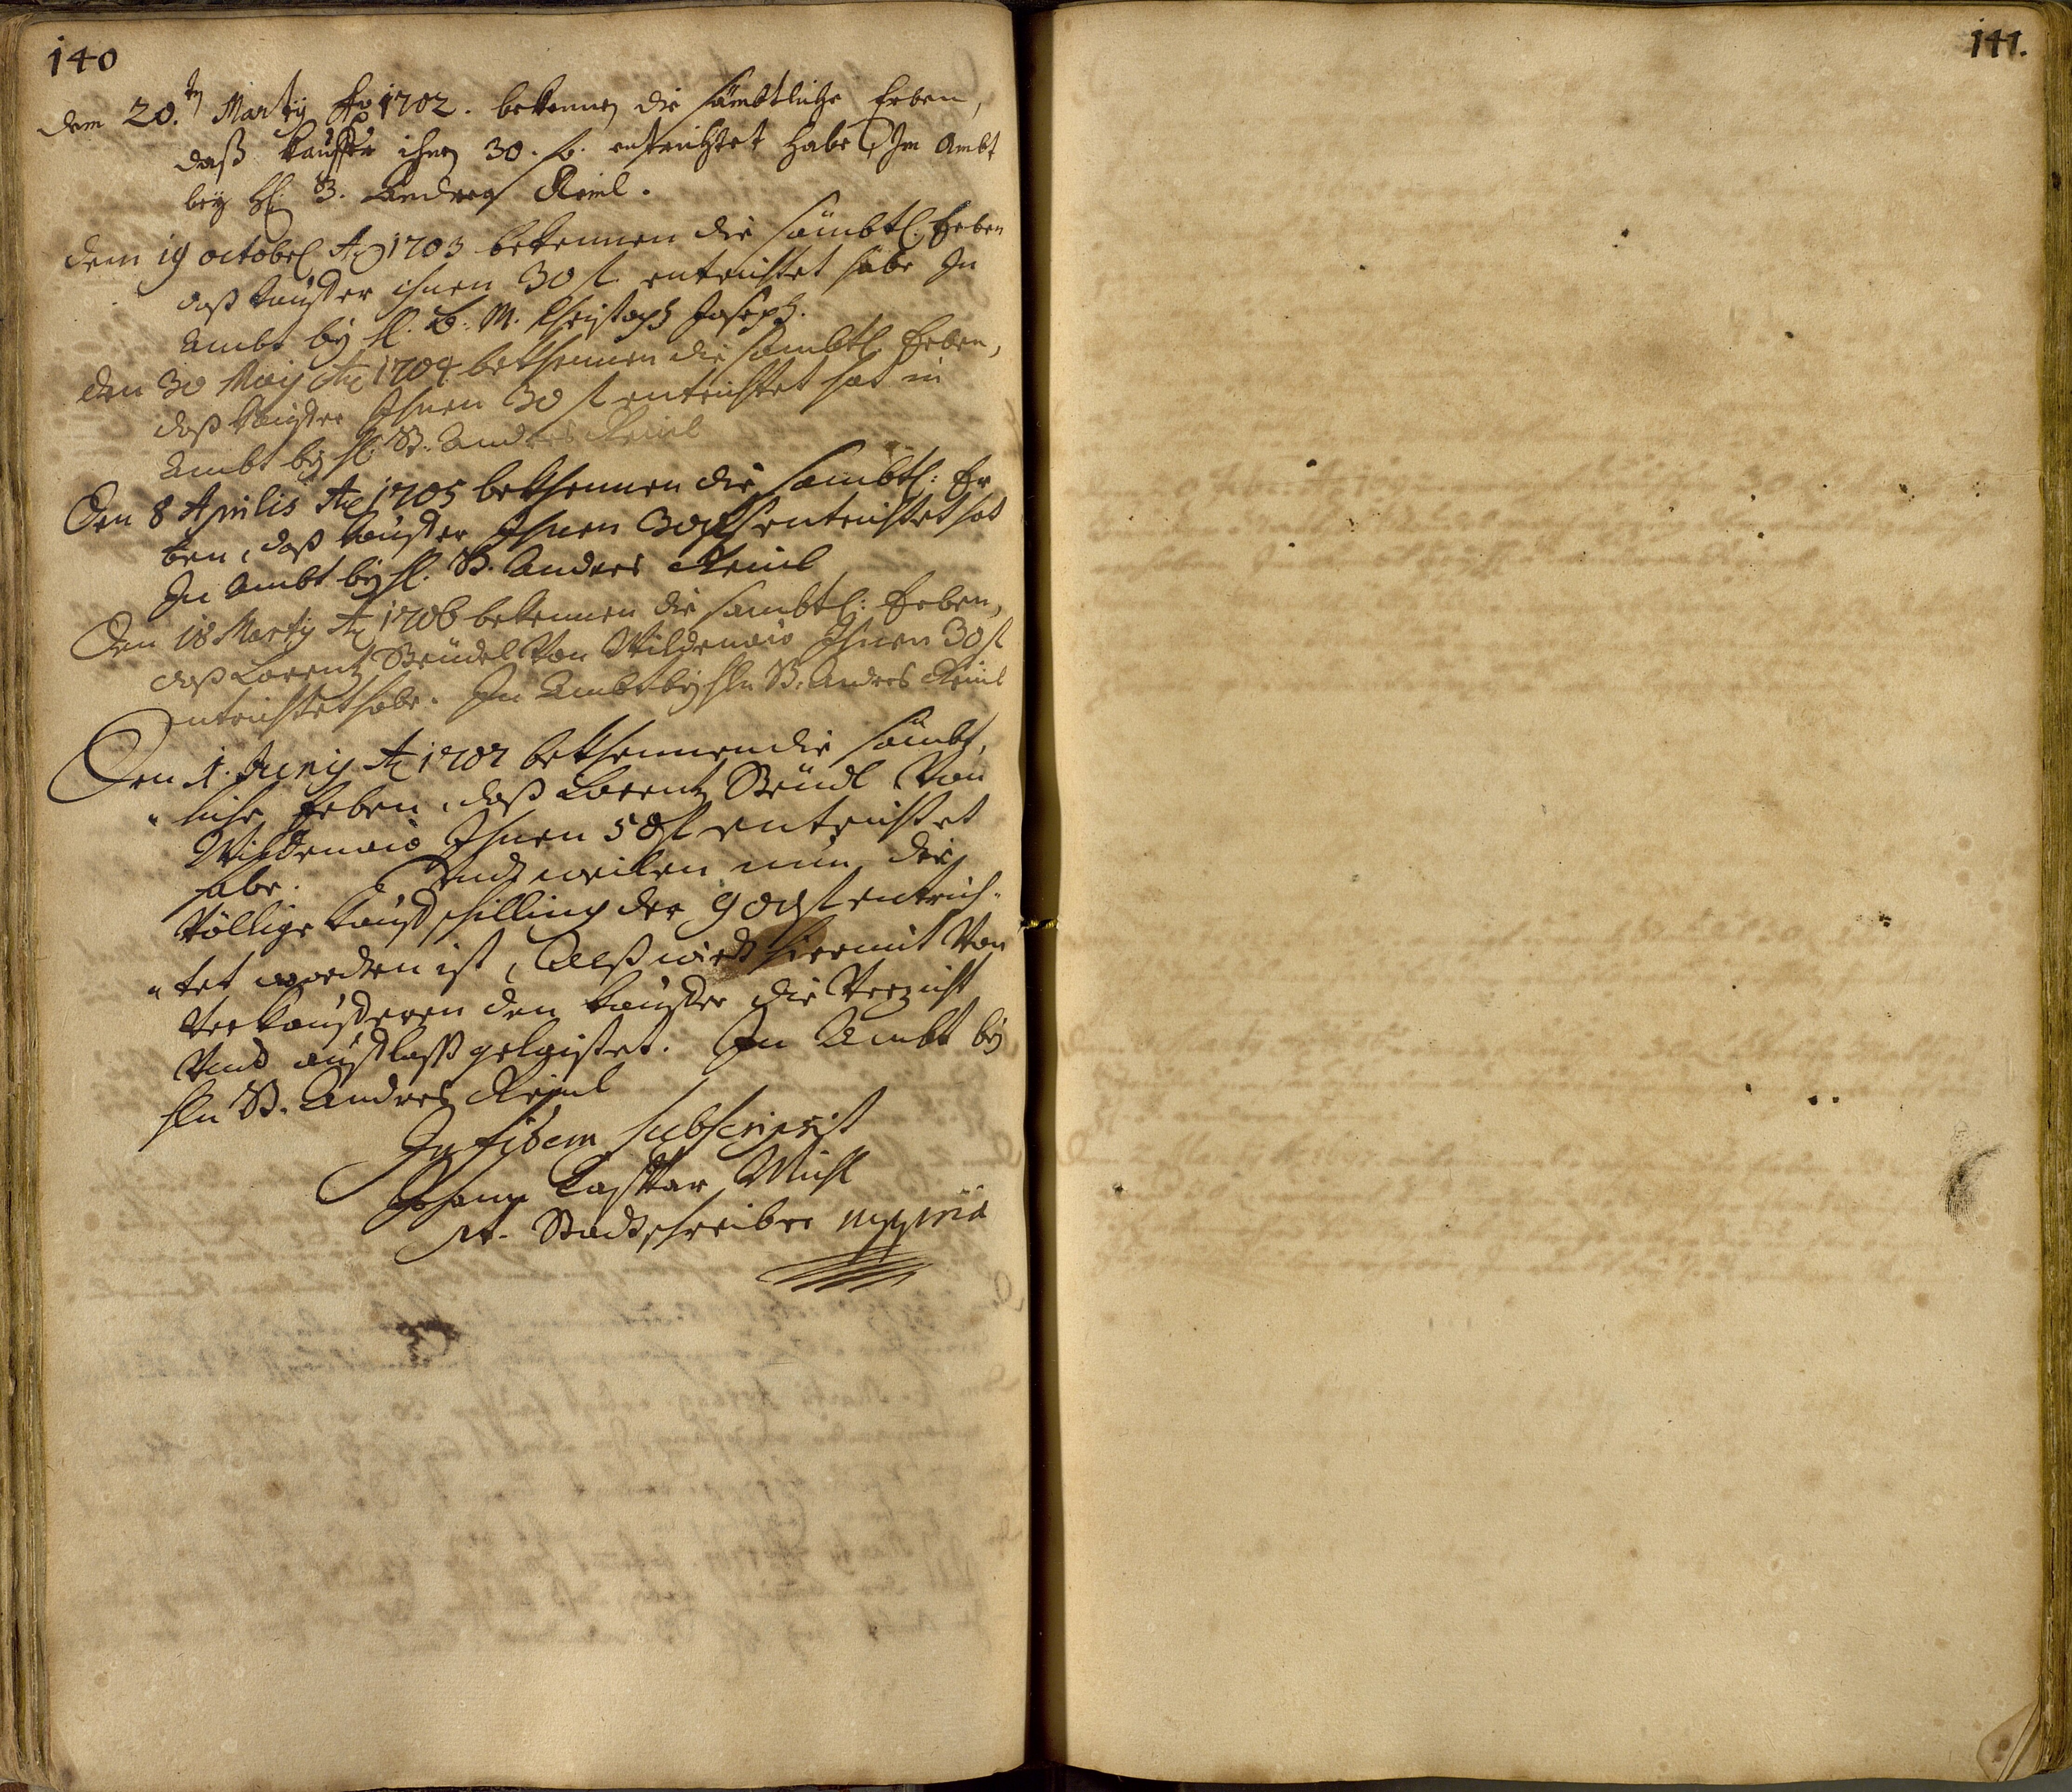 140
dem 20.ten Martij Ao 1702. bekennen die sämbtliche Erben,
daß Kauffer ihnen 30. f. entrichtet habe, Im Ambt
bey H: B. Andreas Reinl.
dem 19 october Ao 1703 bekennen die sämbtl: Erben
daß Kauffer ihnen 30 f. entrichtet habe In
Ambt bey H. B: M. Christoph Joseph.
den 30 Maij Ao 1704 bekhennen die sambtl Erben,
daß Kauffer Ihnen 30 f entrichtet hat in
Ambt bey H: B. Andres Reinl
Den 8 Aprilis Ao 1705 bekhennen die sambtl: Er
ben, daß Kauffer Ihnen 30 f entrichtet hat
In Ambt bey H. B. Andres Reinl
Den 18 Martij Ao 1706 bekennen die sambtl: Erben,
daß Lorentz Beüdel Von Wildenau Ihnen 30 f
Entrichtet habe. In Ambt bey Hln B: Andres Reinl
Den 1. Junij Ao 1707 bekhennen die sämbt,
liche Erben, daß Lorentz Beüdl Von
Wildenau Ihnen 50 f entrichtet
habe. Und weilen nun der
Völlige Kauffschilling der 900 f entrich-
tet worden ist, Alß wirdt hiermit Von
Verkaufferen den Kauffer die Verzicht
Und außlaß gelaistet. In Ambt bey
Hln B. Andres Reinl
In fidem subscripsit
Johann Caspar
Stadtschreiber mppria
141.